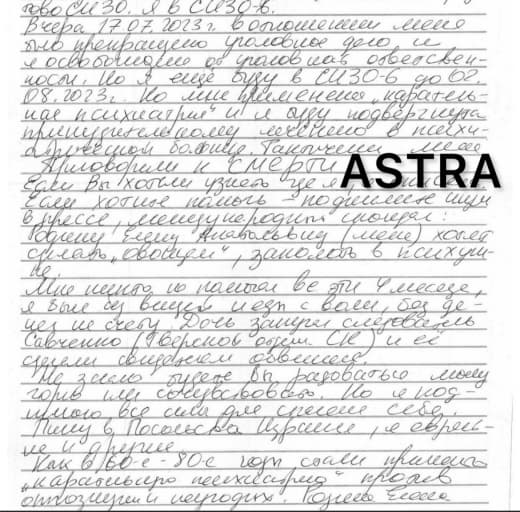 СИЗО. Я в СИЗО-6.
Вчера 17.07.2023г. в отношении меня
было прекращено уголовное дело и
я освобождена от уголовной ответствен-
ности. Но я еще буду в СИЗО-6 до 02.
08.2023г. Но мне применена „каратель-
ная психиатрия" и я буду подвергнута
принудительному лечению в психи-
атрической больнице. Фактически меня
приговорили к СМЕРТИ
ASTRA
Если Вы хотели узнать где я
Если хотите помочь - поднимите шум
в прессе, международный скандал:
Родину Елену Анатольевну (меня) хотят
сделать „овощем", заколоть в психуш-
ке.
Мне никто не помогал все эти 4 месяца,
я была без вещей и еды с воли, без де-
нег на счету. Дочь запугал следователь
Савченко (Тверской отдел СК) и её
сделали свидетелем обвинения.
Не знаю будете Вы радоваться моему
горю или сочувствовать. Но я под-
нимаю все силы для спасения себя.
Пишу в Посольства Израиля, я еврей-
ка и другие
Как в 60-е - 80-е годы стали применять
„карательную психиатрию" против
оппозиции и неугодных. Родина Елена